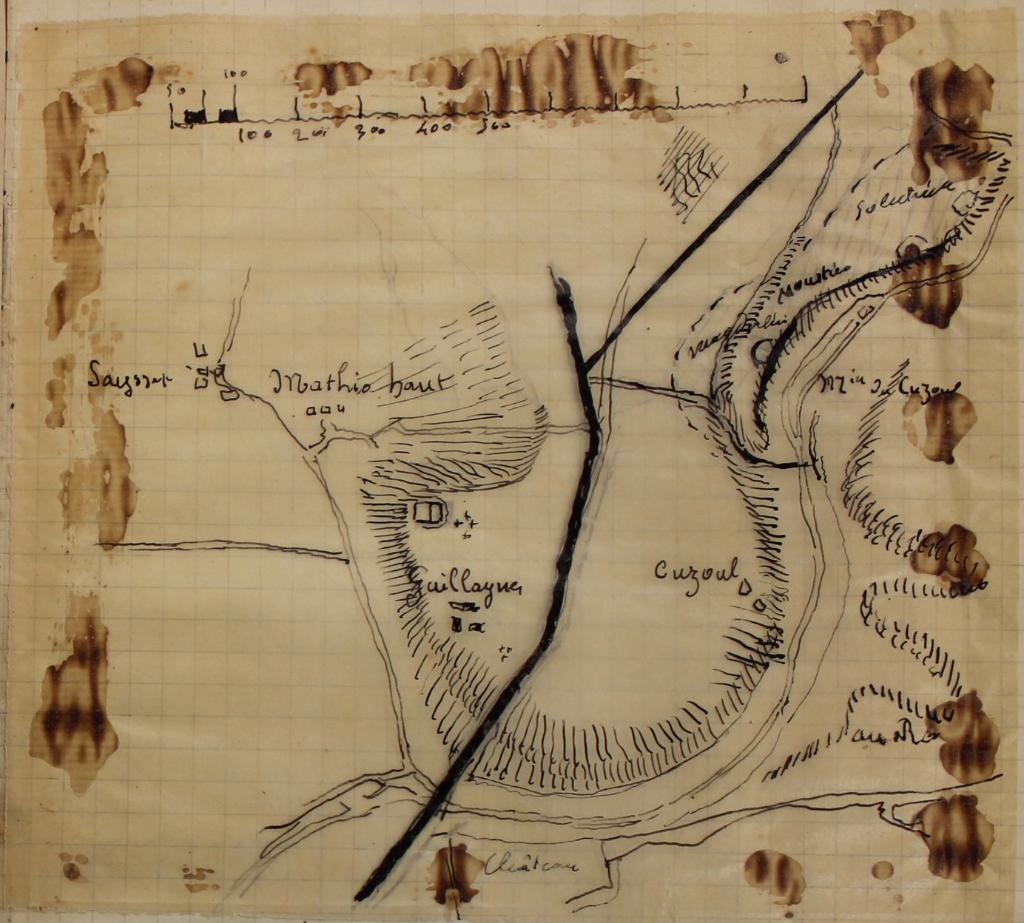 50 100
100 200 300 400 500
Solutréen
Moustier
Saysset
Mathio haut
Mln du Cuzoul
Guillaynes
Cuzoul
Château